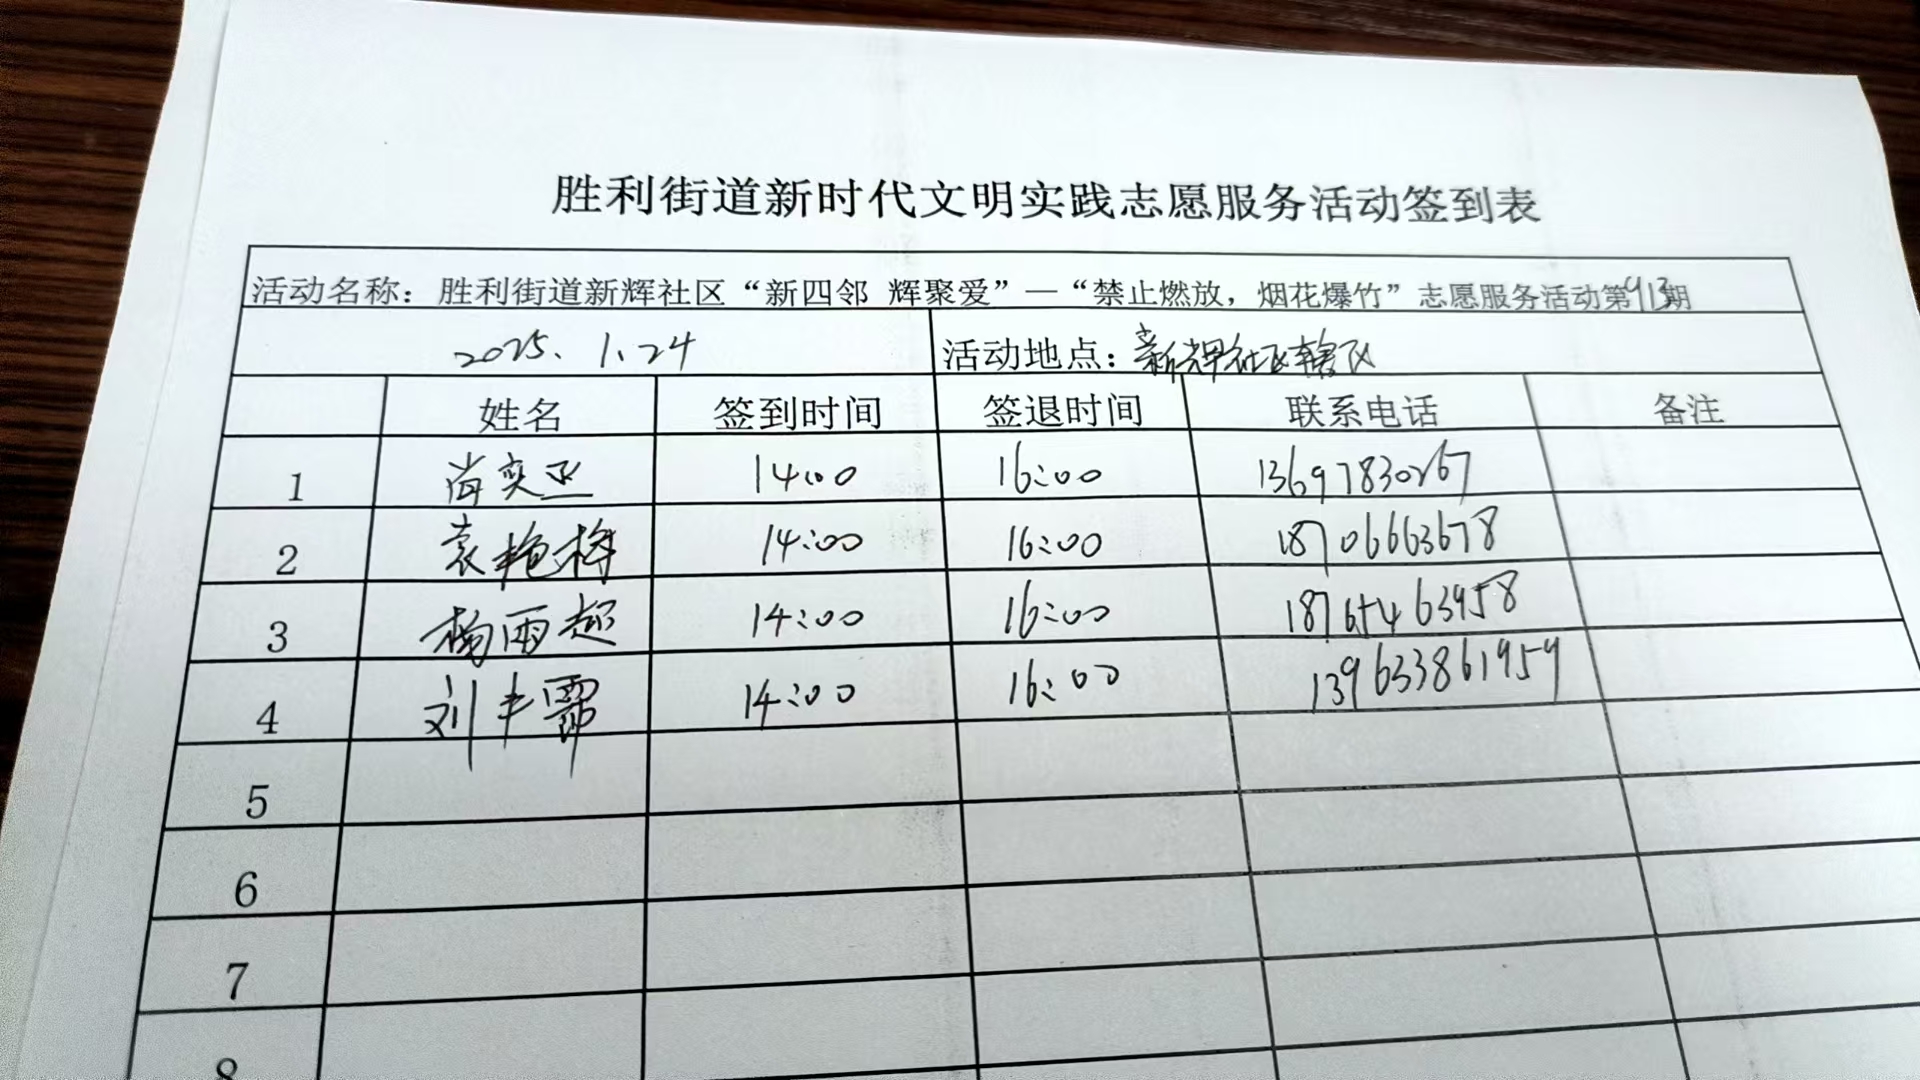 胜利街道新时代文明实践志愿服务活动签到表
活动名称：胜利街道新辉社区“新四邻 辉聚爱”—“禁止燃放，烟花爆竹”志愿服务活动第913期
2025.1.24 活动地点：新辉社区辖区
姓名 签到时间 签退时间 联系电话 备注
1 尚奕丞 14:00 16:00 13697830267
2 袁艳梅 14:00 16:00 18706663678
3 杨雨超 14:00 16:00 18765463958
4 刘丰霈 14:00 16:00 139633861959
5
6
7
8